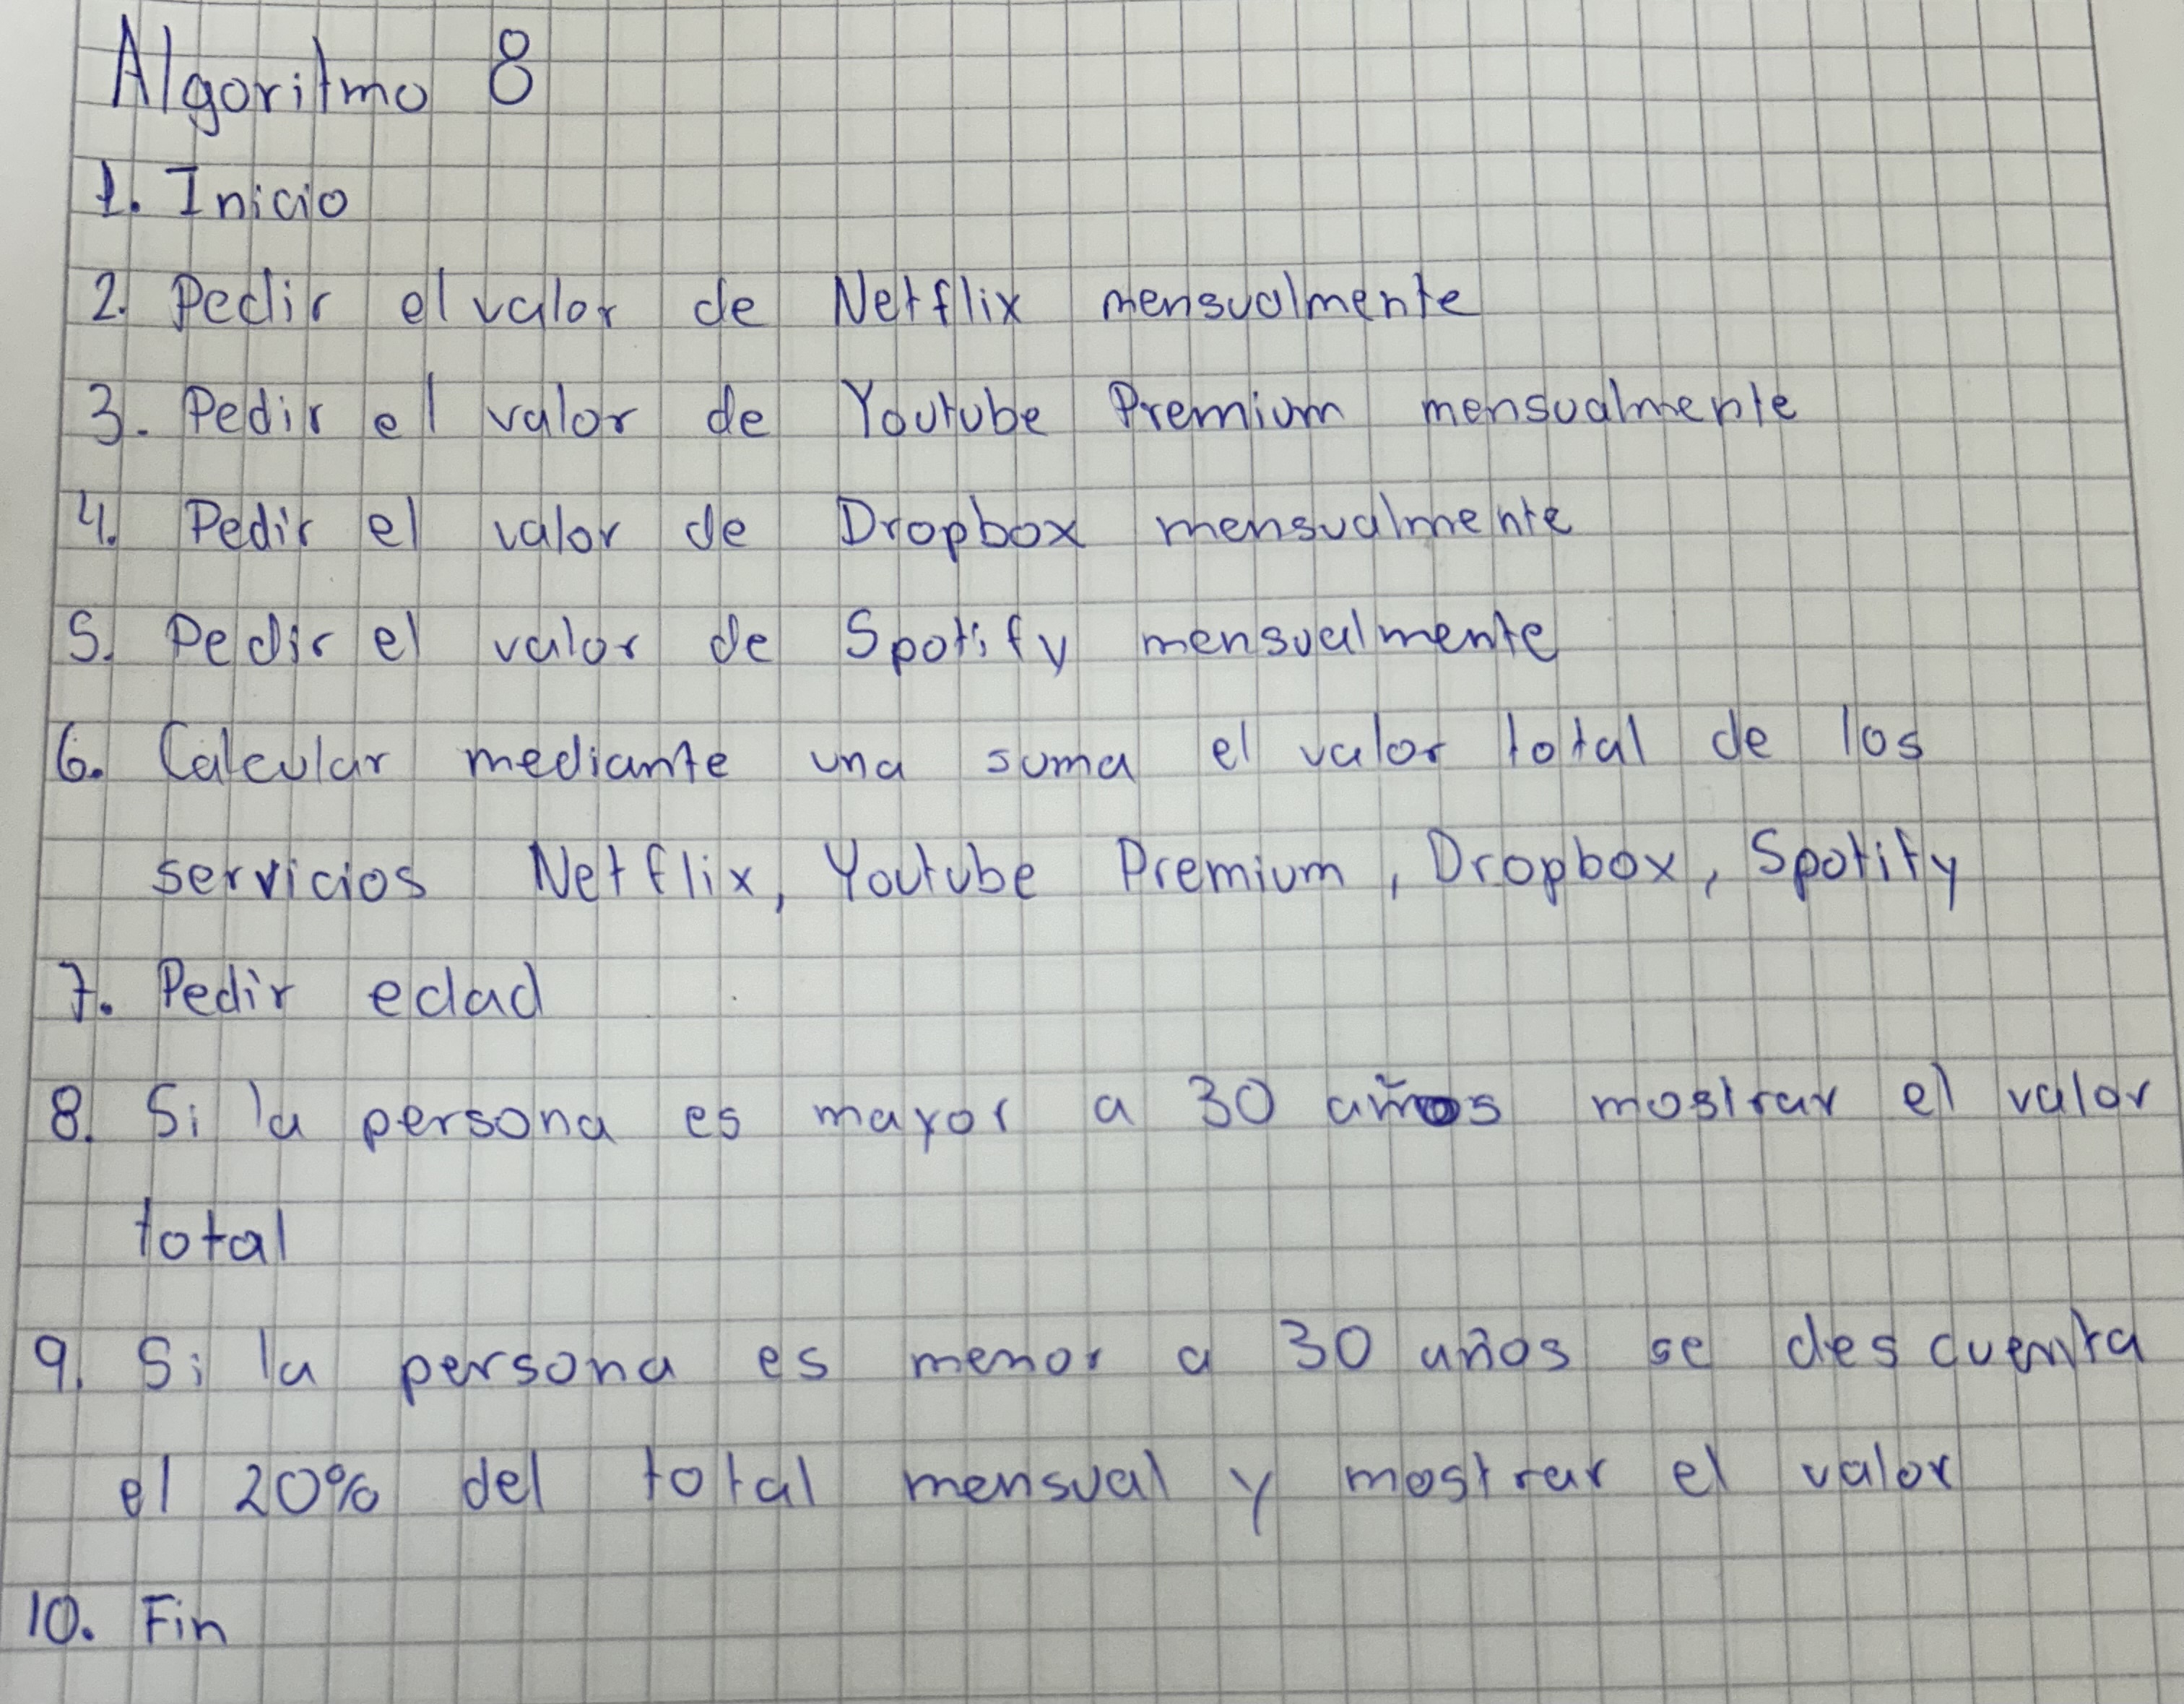 Algoritmo 8
1. Inicio
2. Pedir el valor de Netflix mensualmente
3. Pedir el valor de Youtube Premium mensualmente
4. Pedir el valor de Dropbox mensualmente
5. Pedir el valor de Spotify mensualmente
6. Calcular mediante una suma el valor total de los
servicios Netflix, Youtube Premium, Dropbox, Spotify
7. Pedir edad
8. Si la persona es mayor a 30 años mostrar el valor
total
9. Si la persona es menor a 30 años se descuenta
el 20% del total mensual y mostrar el valor
10. Fin